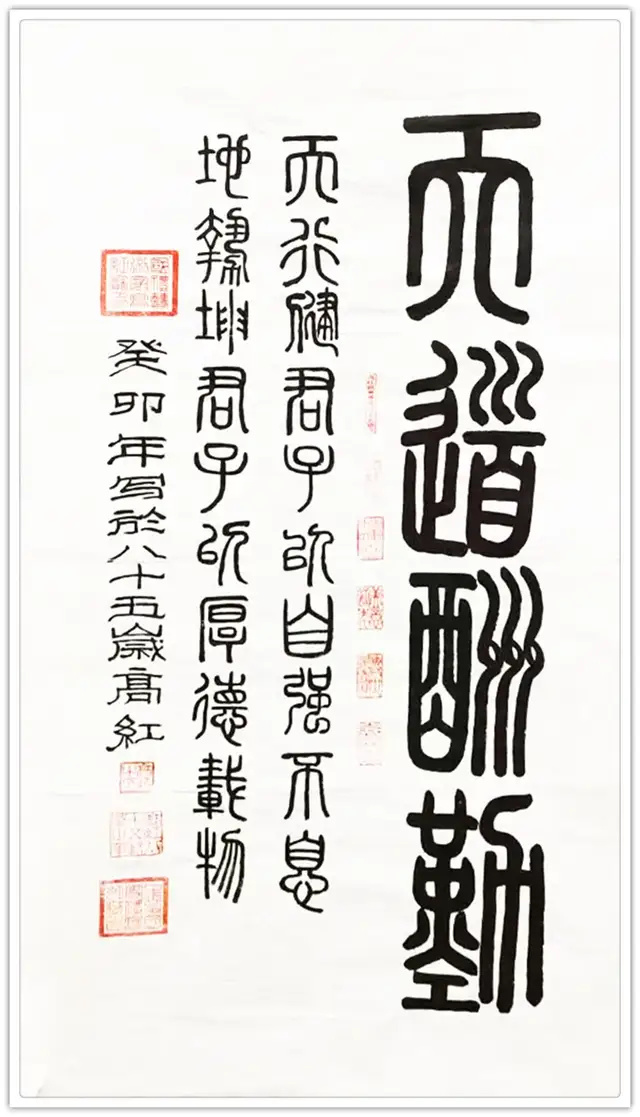 天道酬勤
天行健君子以自强不息
地势坤君子以厚德載物
癸卯年写於八十五歲高紅